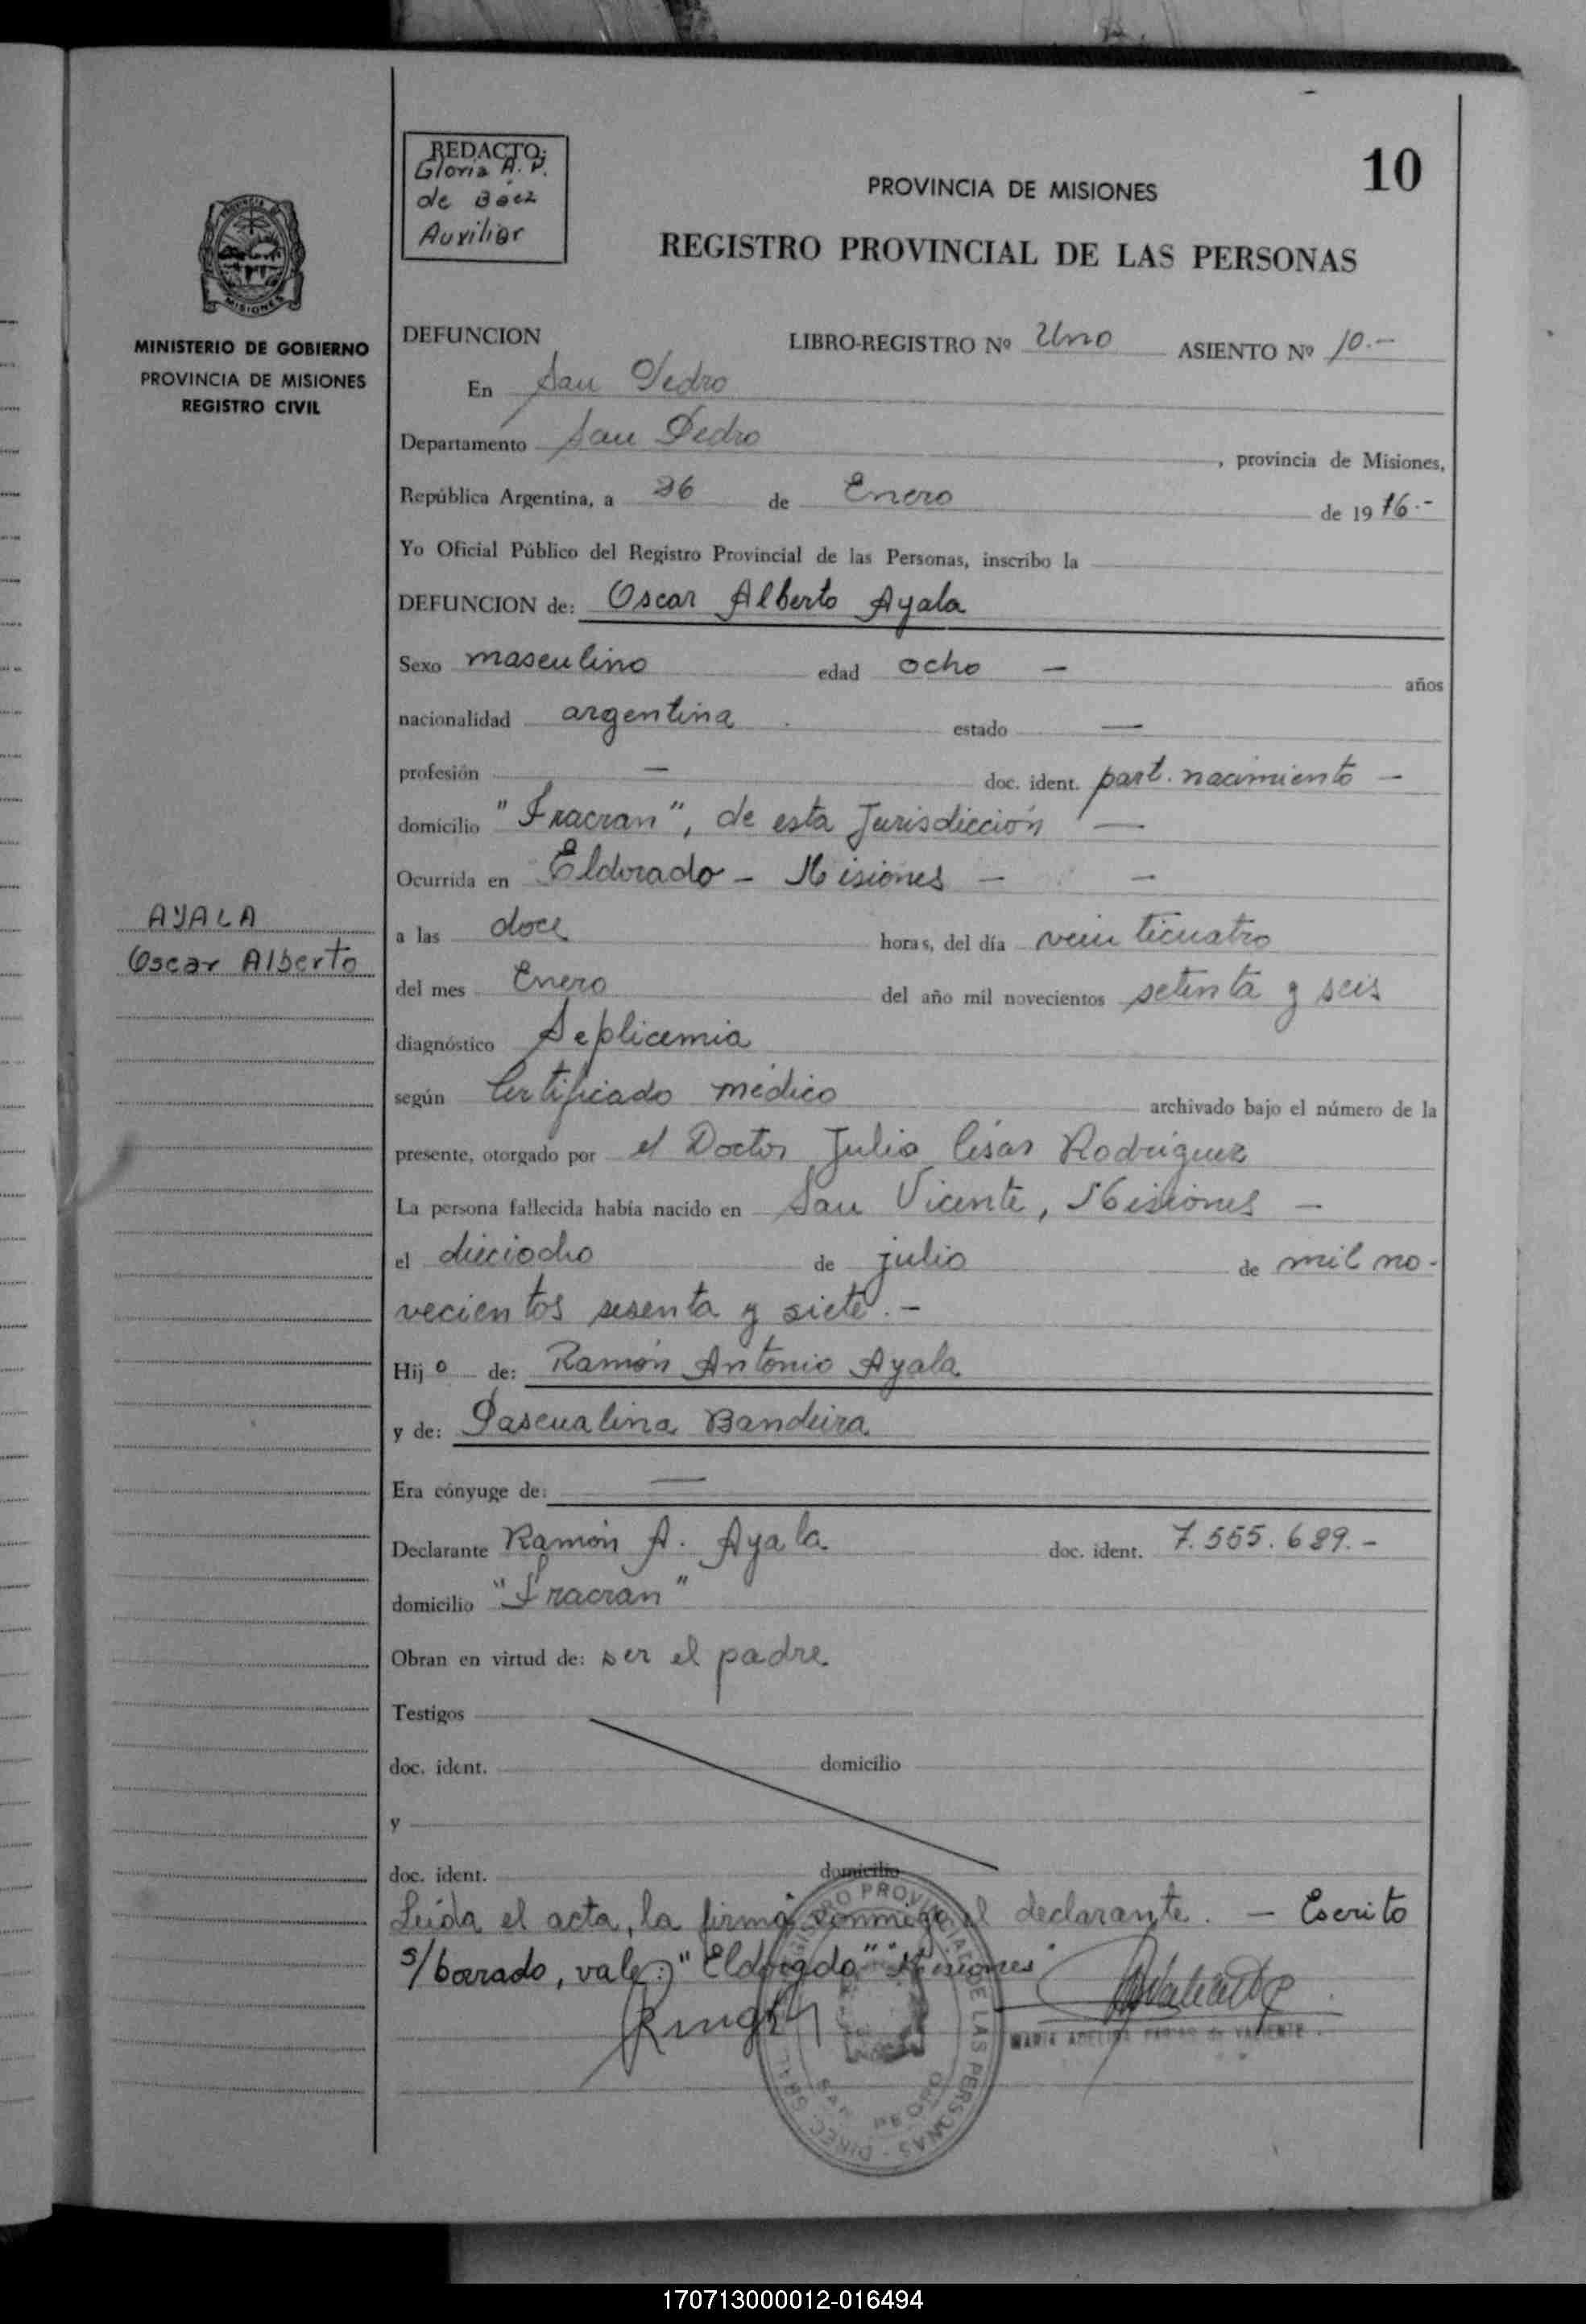 10
REDACTO:
Gloria A. P.
de Báez
Auxiliar
PROVINCIA DE MISIONES
REGISTRO PROVINCIAL DE LAS PERSONAS
MISIONES
MINISTERIO DE GOBIERNO
PROVINCIA DE MISIONES
REGISTRO CIVIL
AYALA
Oscar Alberto
DEFUNCION LIBRO-REGISTRO Nº Uno ASIENTO Nº 10.-
En San Pedro
Departamento San Pedro , provincia de Misiones,
República Argentina, a 26 de Enero de 1976.-
Yo Oficial Público del Registro Provincial de las Personas, inscribo la
DEFUNCION de: Oscar Alberto Ayala
Sexo masculino edad ocho — años
nacionalidad argentina . estado —
profesión — doc. ident. part. nacimiento —
domicilio "Fracran", de esta Jurisdicción —
Ocurrida en Eldorado - Misiones — —
a las doce horas, del día veinticuatro
del mes Enero del año mil novecientos setenta y seis
diagnóstico Septicemia
según Certificado médico archivado bajo el número de la
presente, otorgado por el Doctor Julio César Rodríguez
La persona fallecida había nacido en San Vicente, Misiones —
el dieciocho de julio de mil no-
vecientos sesenta y siete.-
Hijo de: Ramón Antonio Ayala
y de: Pascualina Bandeira
Era cónyuge de: —
Declarante Ramón A. Ayala doc. ident. 7.555.689.-
domicilio "Fracran"
Obran en virtud de: ser el padre
Testigos
doc. ident. domicilio
y
doc. ident. domicilio
Leída el acta, la firma conmigo el declarante. — Escrito
s/borrado, vale: "Eldorado" "Misiones"
MARIA de VALIENTE
SAN PEDRO
170713000012-016494